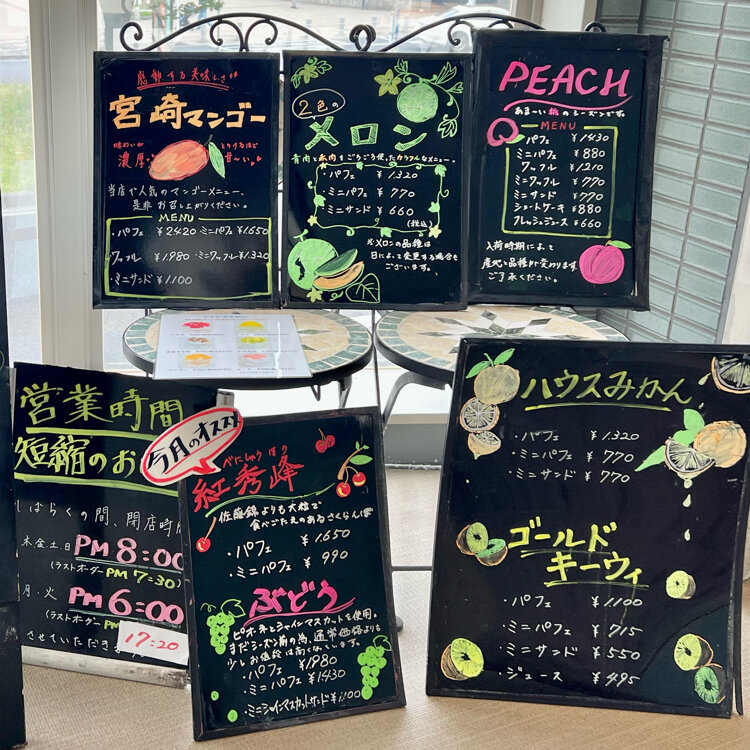 感動する美味しさ!!
宮崎マンゴー
味わいが
濃厚
とろけるほど
甘〜い
当店で人気のマンゴーメニュー、
是非お召し上がりください。
MENU
・パフェ ¥2420 ・ミニパフェ ¥1650
・ワッフル ¥1980 ・ミニワッフル ¥1320
・ミニサンド ¥1100
2色の
メロン
青肉と赤肉をごろごろ使ったカラフルなメニュー。
・パフェ ¥1,320
・ミニパフェ ¥770
・ミニサンド ¥660
(税込)
※メロンの品種は
日によって変更する場合も
ございます。
PEACH
あま〜い桃のシーズンです。
MENU
パフェ ¥1430
ミニパフェ ¥880
ワッフル ¥1210
ミニワッフル ¥770
ミニサンド ¥770
ショートケーキ ¥880
フレッシュジュース ¥660
入荷時期によって
産地と品種が変わります
ご了承ください。
営業時間
短縮のお
しばらくの間、閉店時間
木金土日 PM 8:00
(ラストオーダー PM 7:30)
月・火 PM 6:00
(ラストオーダー PM
17:20
させていただきます
今月のオススメ
べにしゅうほう
紅秀峰
佐藤錦よりも大粒で
食べごたえのあるさくらんぼ
・パフェ ¥1,650
・ミニパフェ ¥990
ぶどう
ピオーネとシャインマスカットを使用。
まだシーズン前の為、通常価格よりも
少しお値段は高くなっています。
・パフェ ¥1980
・ミニパフェ ¥1430
・ミニシャインマスカットサンド ¥1,100
ハウスみかん
・パフェ ¥1,320
・ミニパフェ ¥770
・ミニサンド ¥770
ゴールド
キーウィ
・パフェ ¥1,100
・ミニパフェ ¥715
・ミニサンド ¥550
・ジュース ¥495